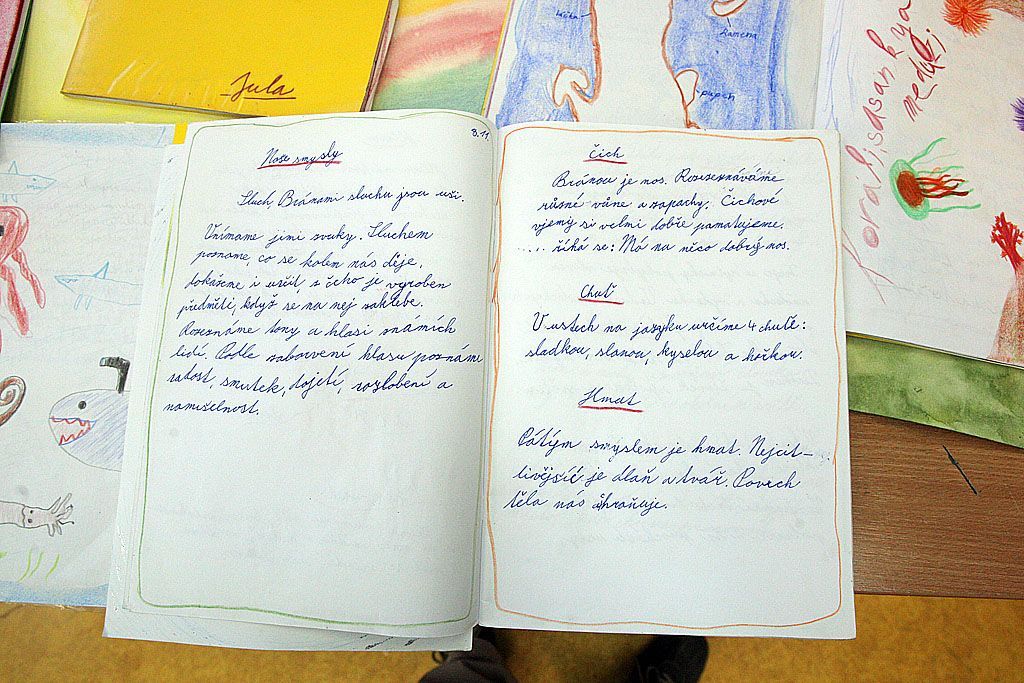 Jula
kůžka
ramena
papoh
Koráli, sasanky a
medúzi
8.11.
Naše smysly
Sluch, Bránami sluchu jsou uši.
Vnímame jimi zvuky. Sluchem
pozname, co se kolem nás děje,
dokážeme i určit, z čeho je vyroben
předměti, když se na nej zaklebe.
Rozeznáme tony a hlasi známích
lidí. Podle zabarvení hlasu poznáme
radost, smutek, dojetí, rozlobení a
namišlenost.
Čich
Bránou je nos. Rozeznáváme
různé vůně a zapachy. Čichové
vjemy si velmi dobře pamatujeme.
.... říká se: Má na něco dobrý nos.
Chuť
V ustech na jazyku určíme 4 chutě:
sladkou, slanou, kyselou a hořkou.
Hmat
Pátým smyslem je hmat. Nejcit-
livější je dlaň a tvář. Povrch
těla nás ohraňuje.